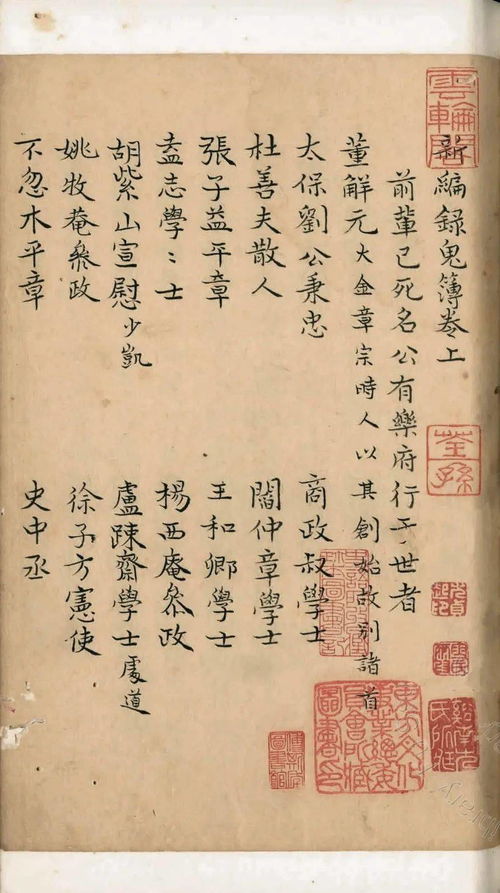 雲輪閣
新編録鬼簿卷上
荃孫
前輩已死名公有樂府行于世者
董解元 大金章宗時人以其創始故列諸首
太保劉公秉忠 商政叔學士
杜善夫散人 閻仲章學士
張子益平章 王和卿學士
盍志學〻士 楊西庵叅政
胡紫山宣慰少凱 盧踈齋學士處道
姚牧菴叅政 徐子方憲使
不忽木平章 史中丞